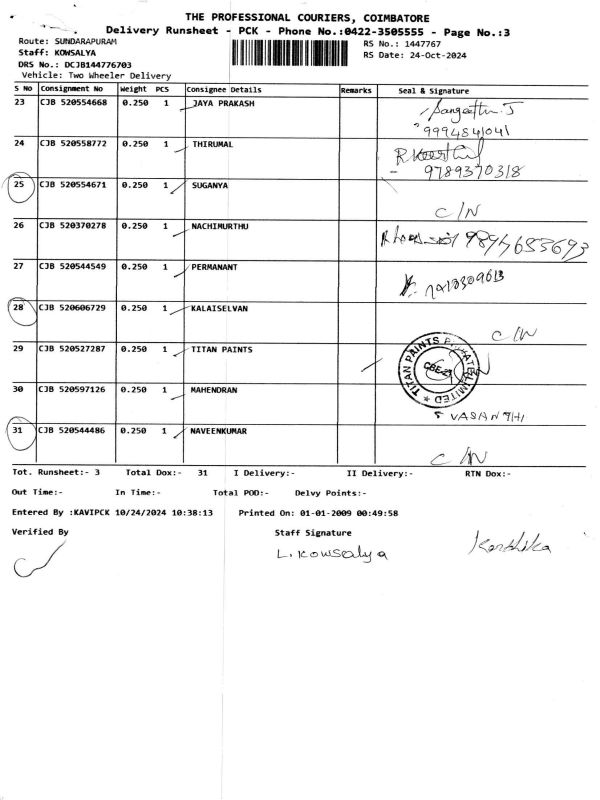 THE PROFESSIONAL COURIERS, COIMBATORE
Delivery Runsheet - PCK - Phone No.:0422-3505555 - Page No.:3
Route: SUNDARAPURAM RS No.: 1447767
Staff: KOWSALYA RS Date: 24-Oct-2024
DRS No.: DCJB144776703
Vehicle: Two Wheeler Delivery
S No Consignment No Weight PCS Consignee Details Remarks Seal & Signature
23 CJB 520554668 0.250 1 JAYA PRAKASH Sangeetha. J
9994841041
24 CJB 520558772 0.250 1 THIRUMAL
9789370318
25 CJB 520554671 0.250 1 SUGANYA
C/N
26 CJB 520370278 0.250 1 NACHIMURTHU
27 CJB 520544549 0.250 1 PERMANANT
28 CJB 520606729 0.250 1 KALAISELVAN
C/N
29 CJB 520527287 0.250 1 TITAN PAINTS TITAN PAINTS PRIVATE LIMITED
30 CJB 520597126 0.250 1 MAHENDRAN
31 CJB 520544486 0.250 1 NAVEENKUMAR
C/N
Tot. Runsheet:- 3 Total Dox:- 31 I Delivery:- II Delivery:- RTN Dox:-
Out Time:- In Time:- Total POD:- Delvy Points:-
Entered By :KAVIPCK 10/24/2024 10:38:13 Printed On: 01-01-2009 00:49:58
Verified By Staff Signature
L. Kowsalya Karthika